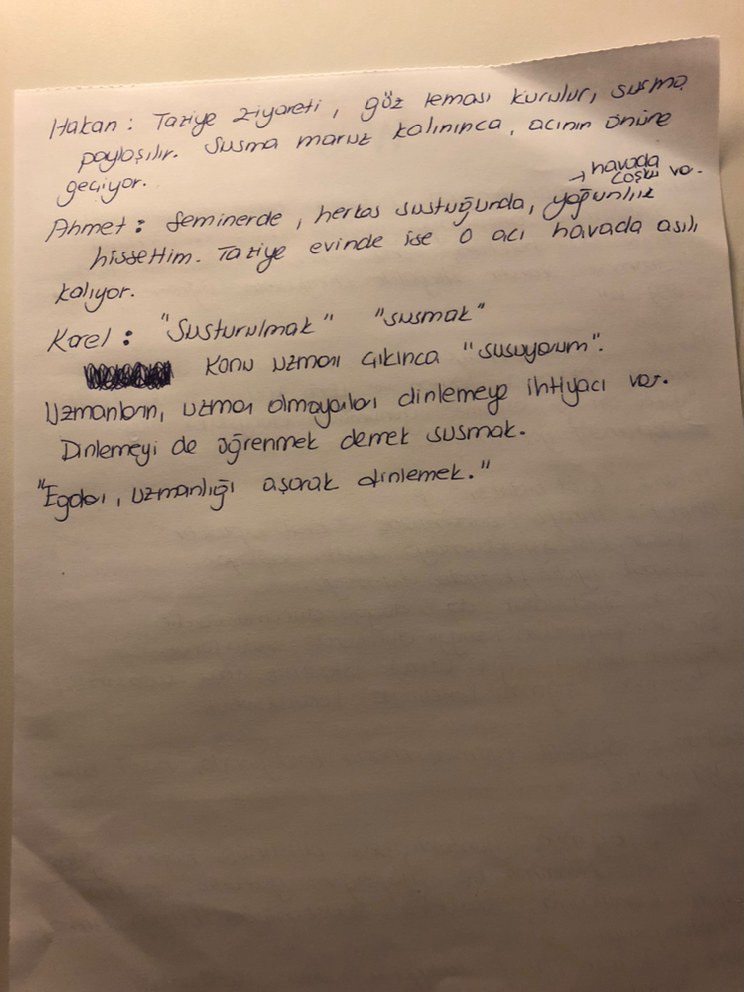 Hakan : Taziye ziyareti, göz teması kurulur, susma
paylaşılır. Susma maruz kalınınca, acının önüne
geçiyor.
→ havada
coşku var.
Ahmet : Seminerde, herkes sustuğunda, yoğunluk
hissettim. Taziye evinde ise o acı havada asılı
kalıyor.
Karel : "Susturulmak" "susmak"
Konu uzmanı çıkınca "susuyorum".
Uzmanların, uzman olmayanları dinlemeye ihtiyacı var.
Dinlemeyi de öğrenmek demek susmak.
"Egoları, uzmanlığı aşarak dinlemek."